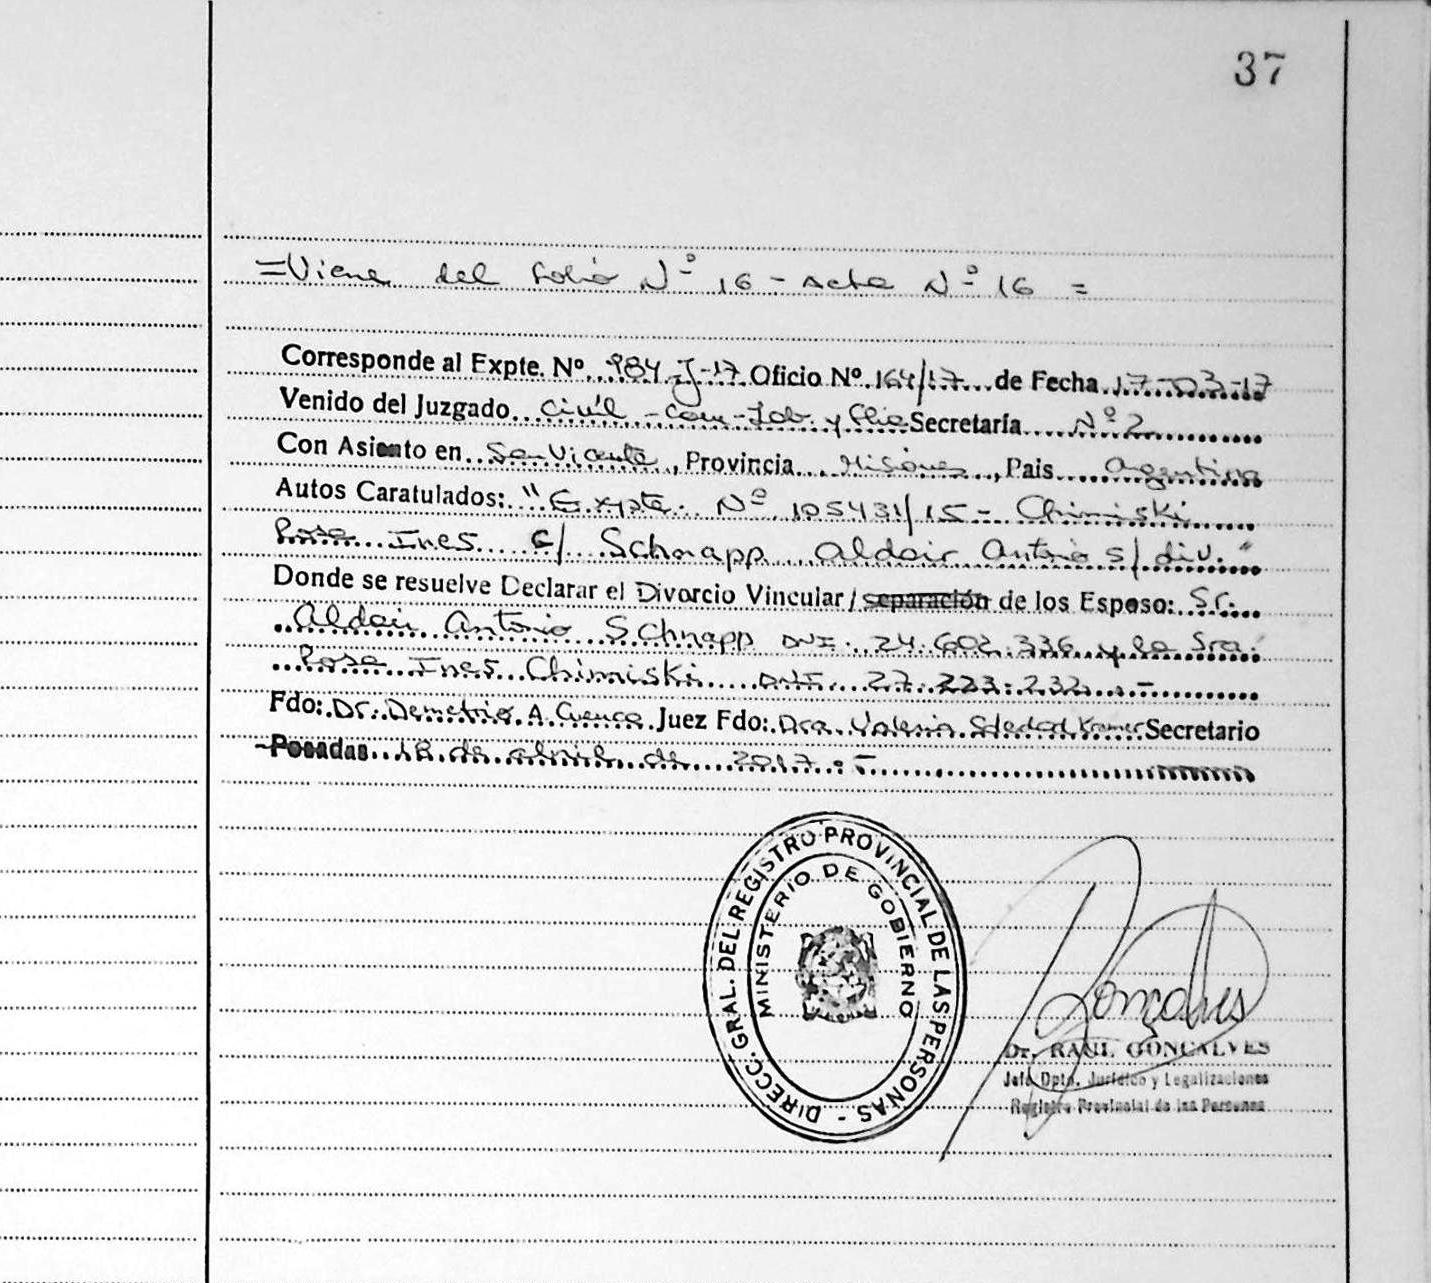 37
=Viene del folio Nº 16 - Acta Nº 16 =
Corresponde al Expte. Nº 984-J-17 Oficio Nº 164/17 de Fecha 17-03-17
Venido del Juzgado Civil - Com - Lab. y flia Secretaría Nº 2
Con Asiento en San Vicente, Provincia Misiones, Pais Argentina
Autos Caratulados: "Expte. Nº 105431/15 - Chimiski
Rosa Ines C/ Schnapp Aldair Antonio s/ div."
Donde se resuelve Declarar el Divorcio Vincular/separación de los Esposo: Sr.
Aldair Antonio Schnapp DNI. 24.602.336 y la Sra.
Rosa Ines Chimiski DNI. 27.223.232.-
Fdo: Dr. Demetrio A. Cuenca Juez Fdo: Dra. Valeria Soledad Kramer Secretario
Posadas 18 de abril de 2017.-
DIRECC. GRAL. DEL REGISTRO PROVINCIAL DE LAS PERSONAS -
MINISTERIO DE GOBIERNO
Gonçalves
Dr. RAUL GONCALVES
Jefe Dpto. Jurídico y Legalizaciones
Registro Provincial de las Personas